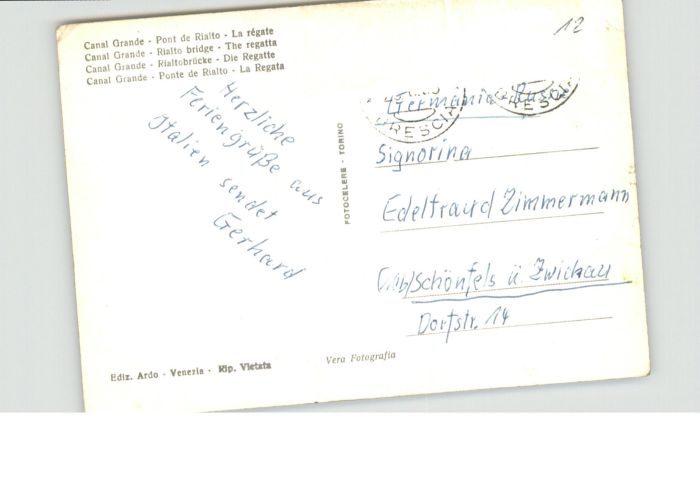 Canal Grande - Pont de Rialto - La régate
Canal Grande - Rialto bridge - The regatta
Canal Grande - Rialtobrücke - Die Regatte
Canal Grande - Ponte de Rialto - La Regata
12
Herzliche
Feriengrüße aus
Italien sendet
Gerhard
FOTOCELERE - TORINO
Germania
BRESCIA
BRESCIA
Signorina
Edeltraud Zimmermann
Schönfels ü. Zwickau
Dorfstr. 14
Ediz. Ardo - Venezia - Rip. Vietata
Vera Fotografia